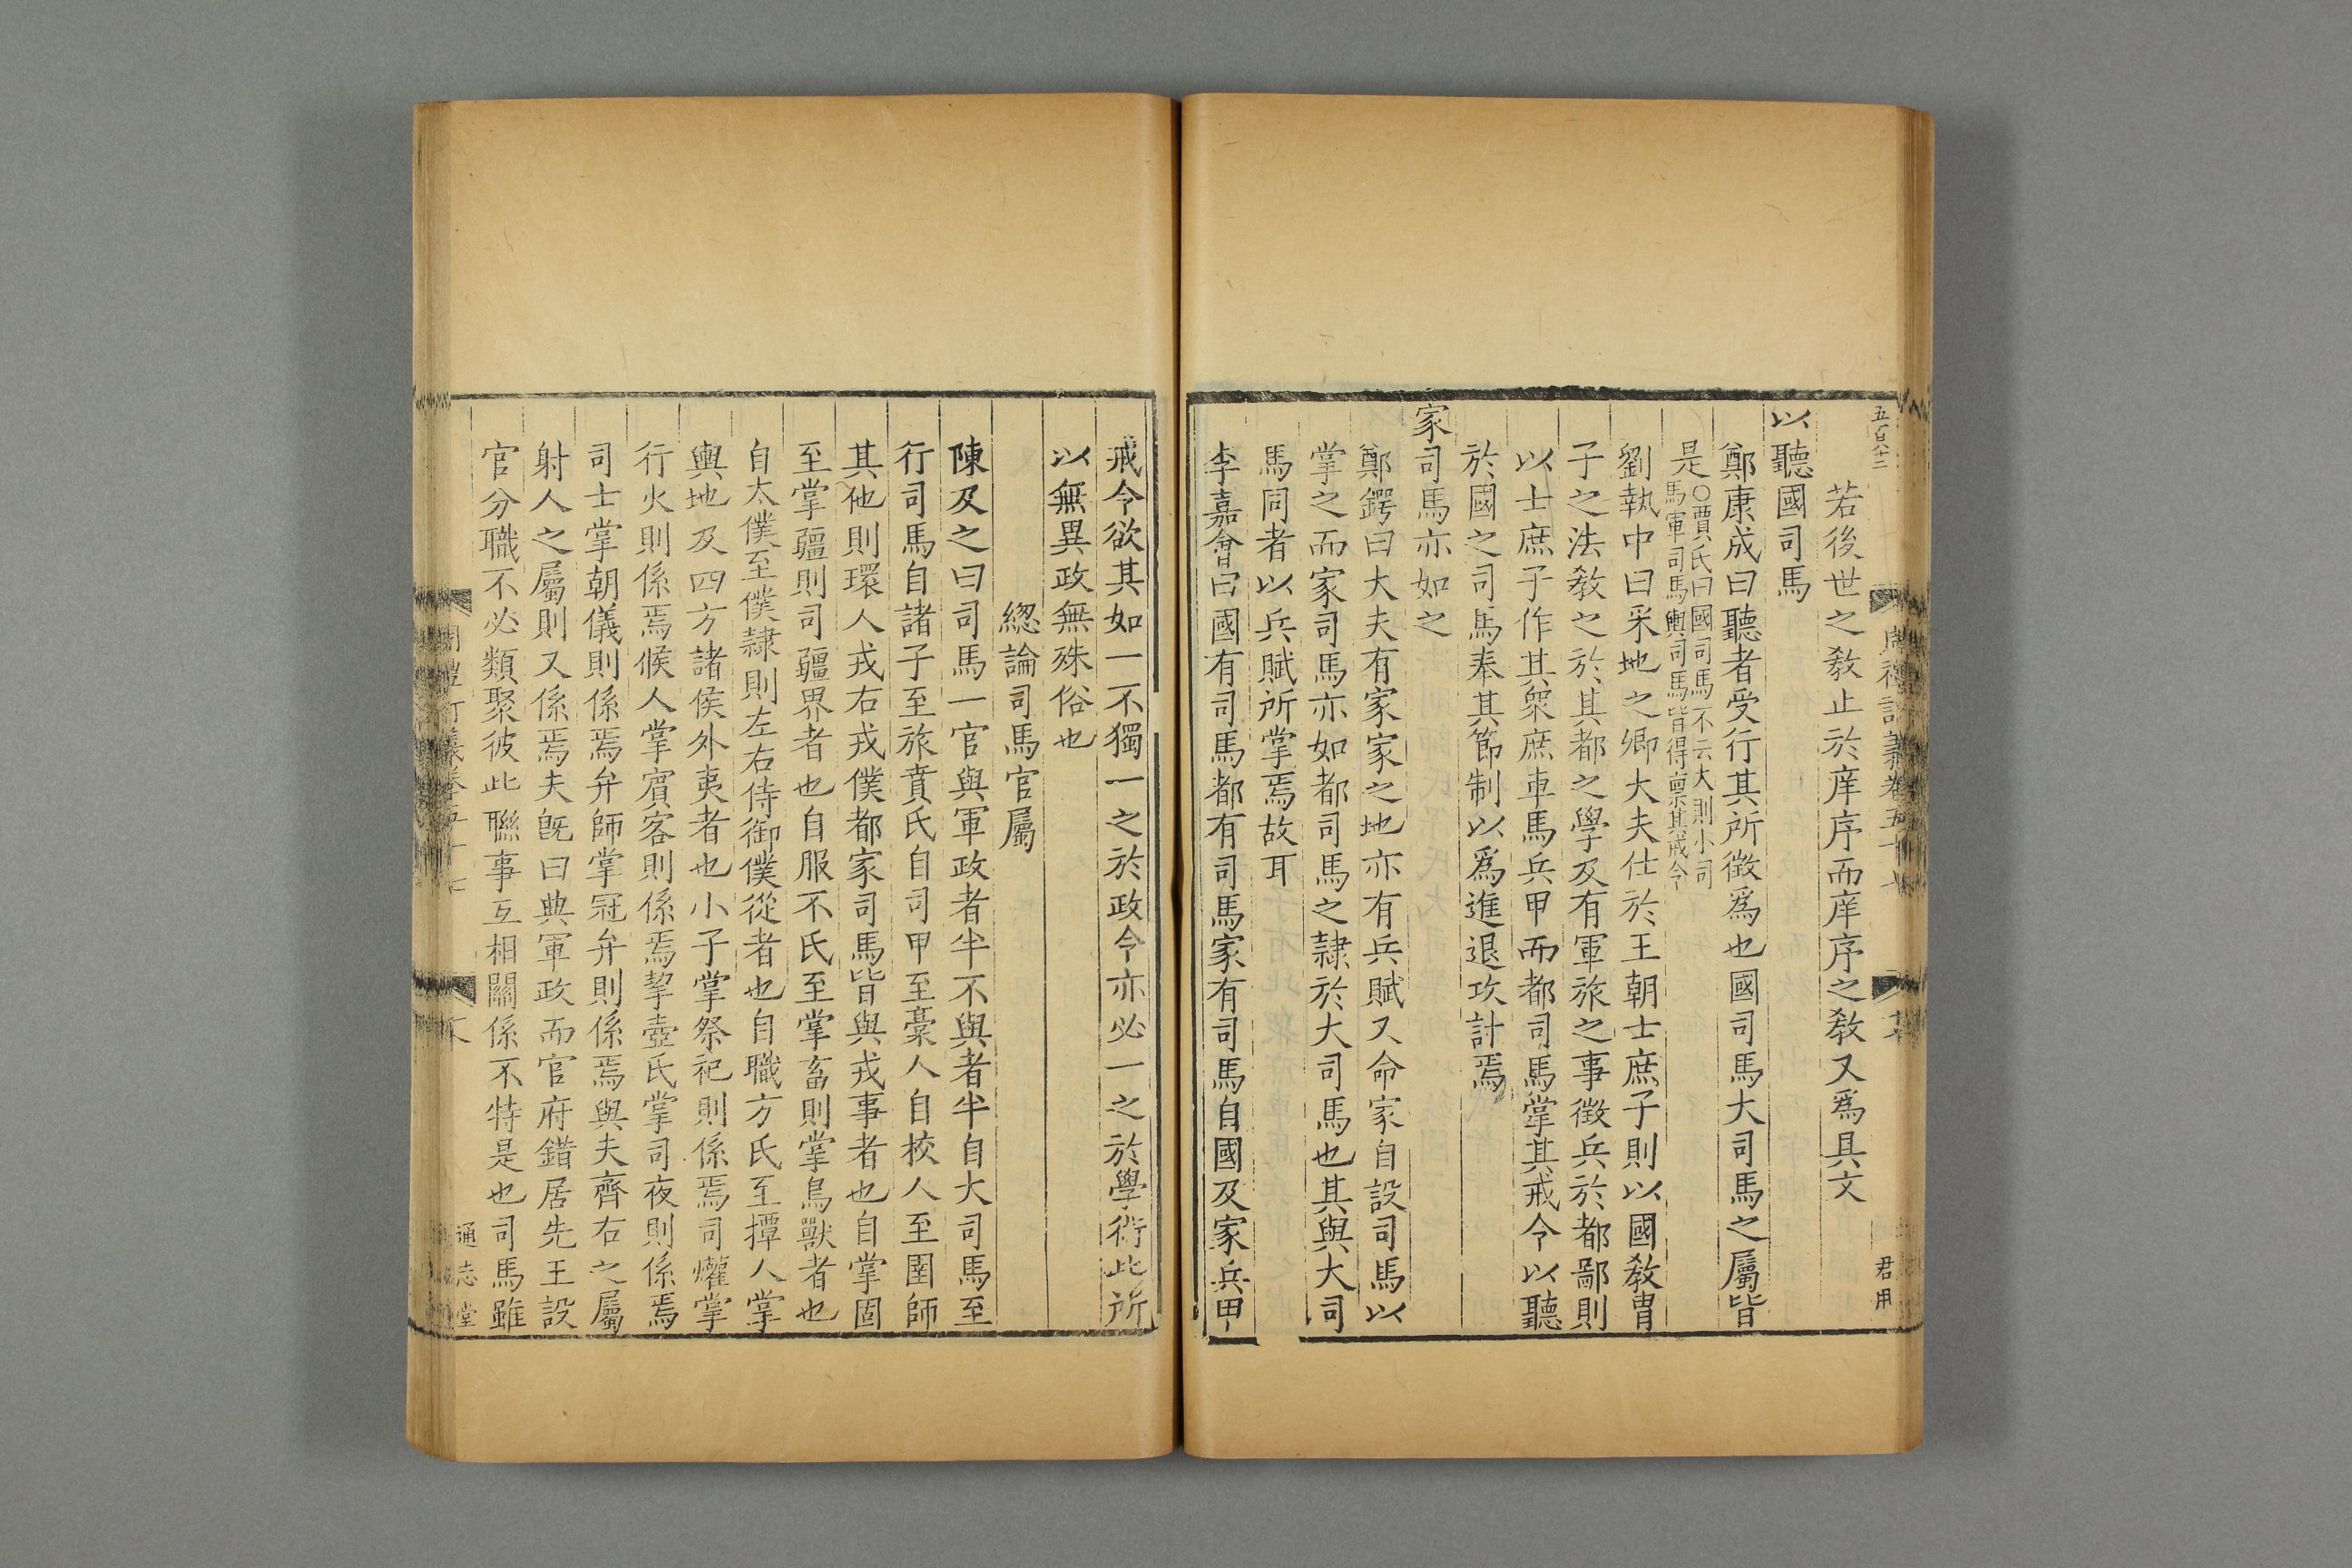 五百八十二
若後世之敎止於庠序而庠序之敎又爲具文
以聽國司馬
鄭康成曰聽者受行其所徵爲也國司馬大司馬之屬皆
是○賈氏曰國司馬不云大則小司
馬軍司馬輿司馬皆得稟其戒令
劉執中曰采地之卿大夫仕於王朝士庶子則以國敎胄
子之法敎之於其都之學及有軍旅之事徵兵於都鄙則
以士庶子作其衆庶車馬兵甲而都司馬掌其戒令以聽
於國之司馬奉其節制以爲進退攻計焉
家司馬亦如之
鄭鍔曰大夫有家家之地亦有兵賦又命家自設司馬以
掌之而家司馬亦如都司馬之隷於大司馬也其與大司
馬同者以兵賦所掌焉故耳
李嘉會曰國有司馬都有司馬家有司馬自國及家兵甲
君用
戒令欲其如一不獨一之於政令亦必一之於學術此所
以無異政無殊俗也
緫論司馬官屬
陳及之曰司馬一官與軍政者半不與者半自大司馬至
行司馬自諸子至旅賁氏自司甲至稾人自校人至圉師
其他則環人戎右戎僕都家司馬皆與戎事者也自掌固
至掌疆則司疆界者也自服不氏至掌畜則掌鳥獸者也
自太僕至僕隷則左右侍御僕從者也自職方氏至撢人掌
輿地及四方諸侯外夷者也小子掌祭祀則係焉司爟掌
行火則係焉候人掌賓客則係焉挈壺氏掌司夜則係焉
司士掌朝儀則係焉弁師掌冠弁則係焉與夫齊右之屬
射人之屬則又係焉夫旣曰典軍政而官府錯居先王設
官分職不必類聚彼此聯事互相關係不特是也司馬雖
通志堂